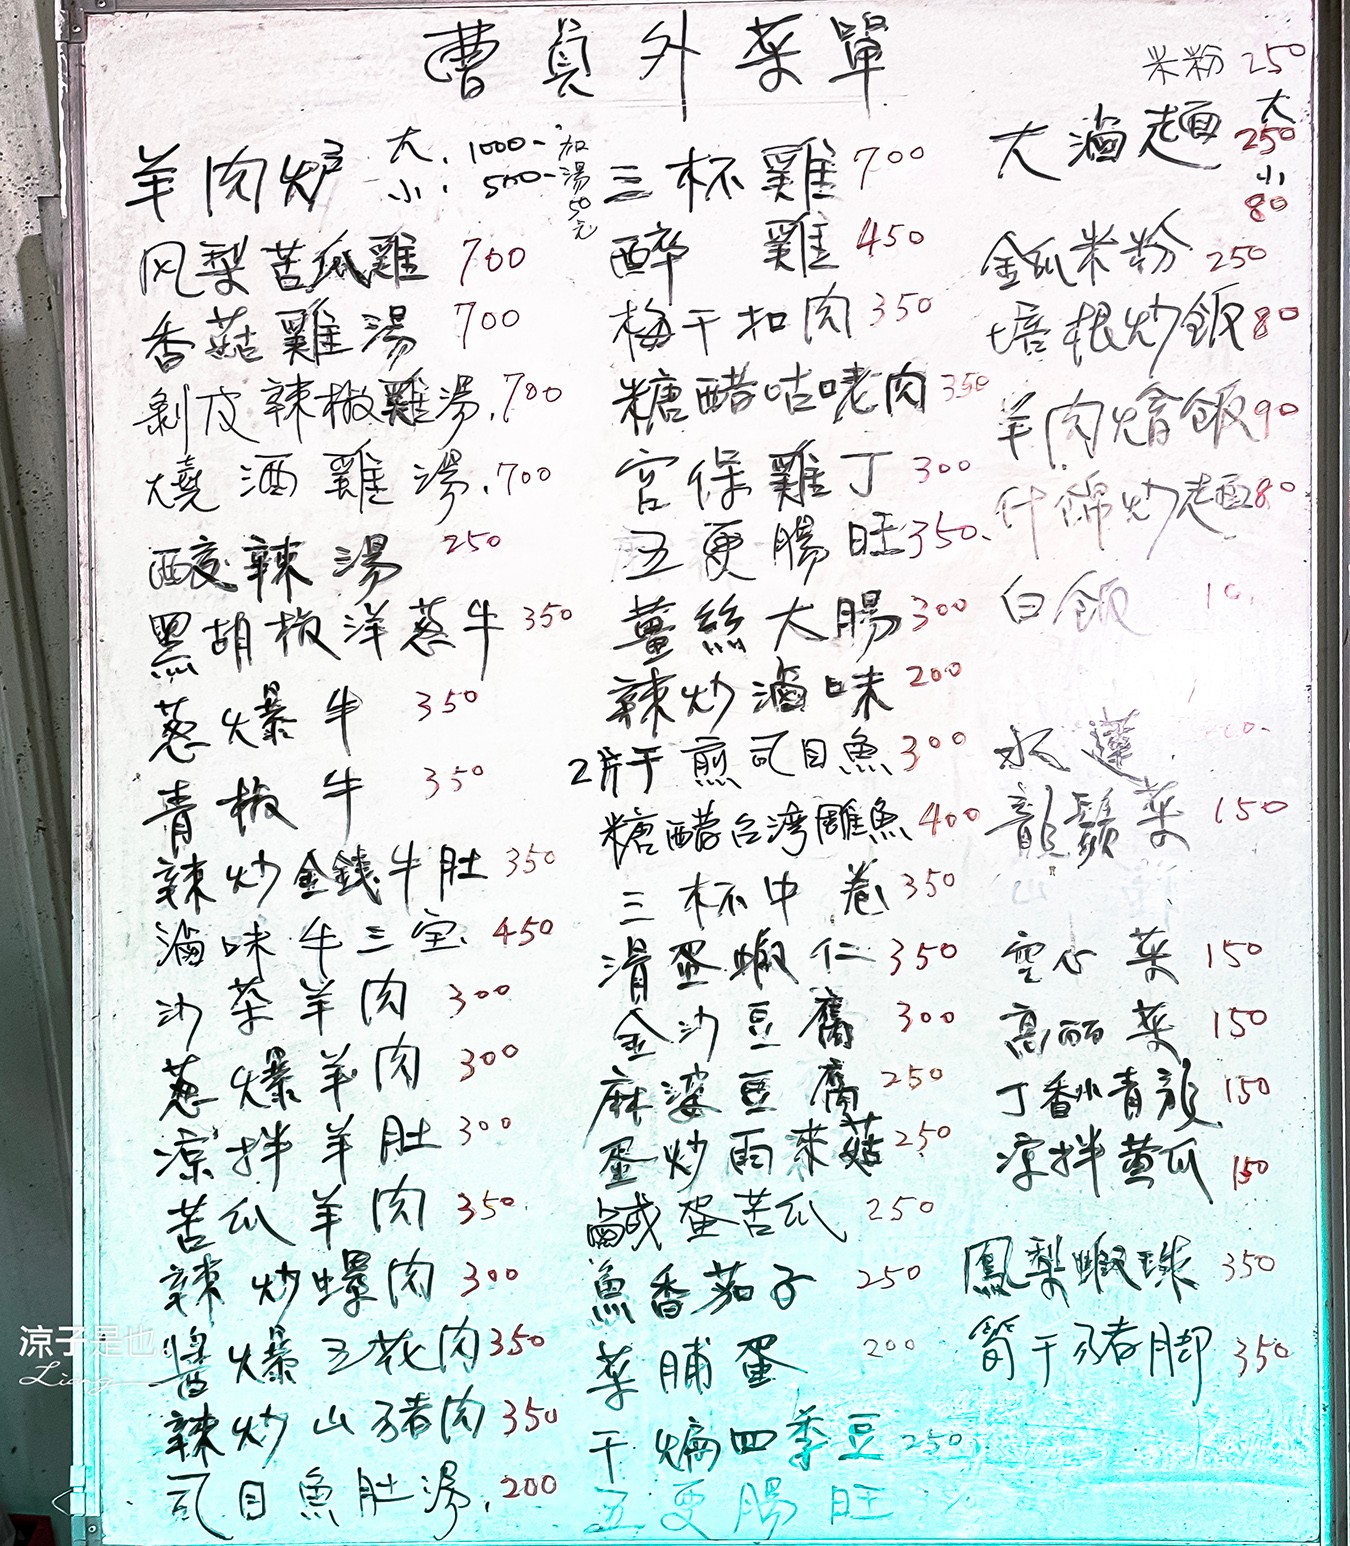 曹員外菜單
羊肉炉 大. 1000- 小. 500- 加湯50元
风梨苦瓜雞 700
香菇雞湯 700
剝皮辣椒雞湯. 700
燒酒雞湯. 700
酸辣湯 250
黑胡椒洋蔥牛 350
蔥爆牛 350
青椒牛 350
辣炒金錢牛肚 350
滷味牛三宝. 450
沙茶羊肉 300
蔥爆羊肉 300
涼拌羊肚 300
苦瓜羊肉 350
辣炒螺肉 300
醬爆五花肉 350
辣炒山豬肉 350
虱目魚肚湯. 200
三杯雞 700
醉雞 450
梅干扣肉 350
糖醋咕咾肉 350
宮保雞丁 300
五更腸旺 350.
薑絲大腸 300
辣炒滷味 200
2片干煎虱目魚 300
糖醋台湾雕魚 400
三杯中卷 350
滑蛋蝦仁 350
金沙豆腐 300
麻婆豆腐 250
蛋炒雨來菇 250
鹹蛋苦瓜 250
魚香茄子 250
菜脯蛋 200
干煸四季豆 250
五更腸旺
米粉 250
大滷麵 大 250 小 80
金瓜米粉 250
培根炒飯 80
羊肉燴飯 90
什錦炒麵 80
白飯 10.
水蓮
龍鬚菜 150
山
空心菜 150
高丽菜 150
丁香炒青龙 150
涼拌黄瓜 150
鳳梨蝦球 350
筍干豬脚 350
涼子是也
Liang